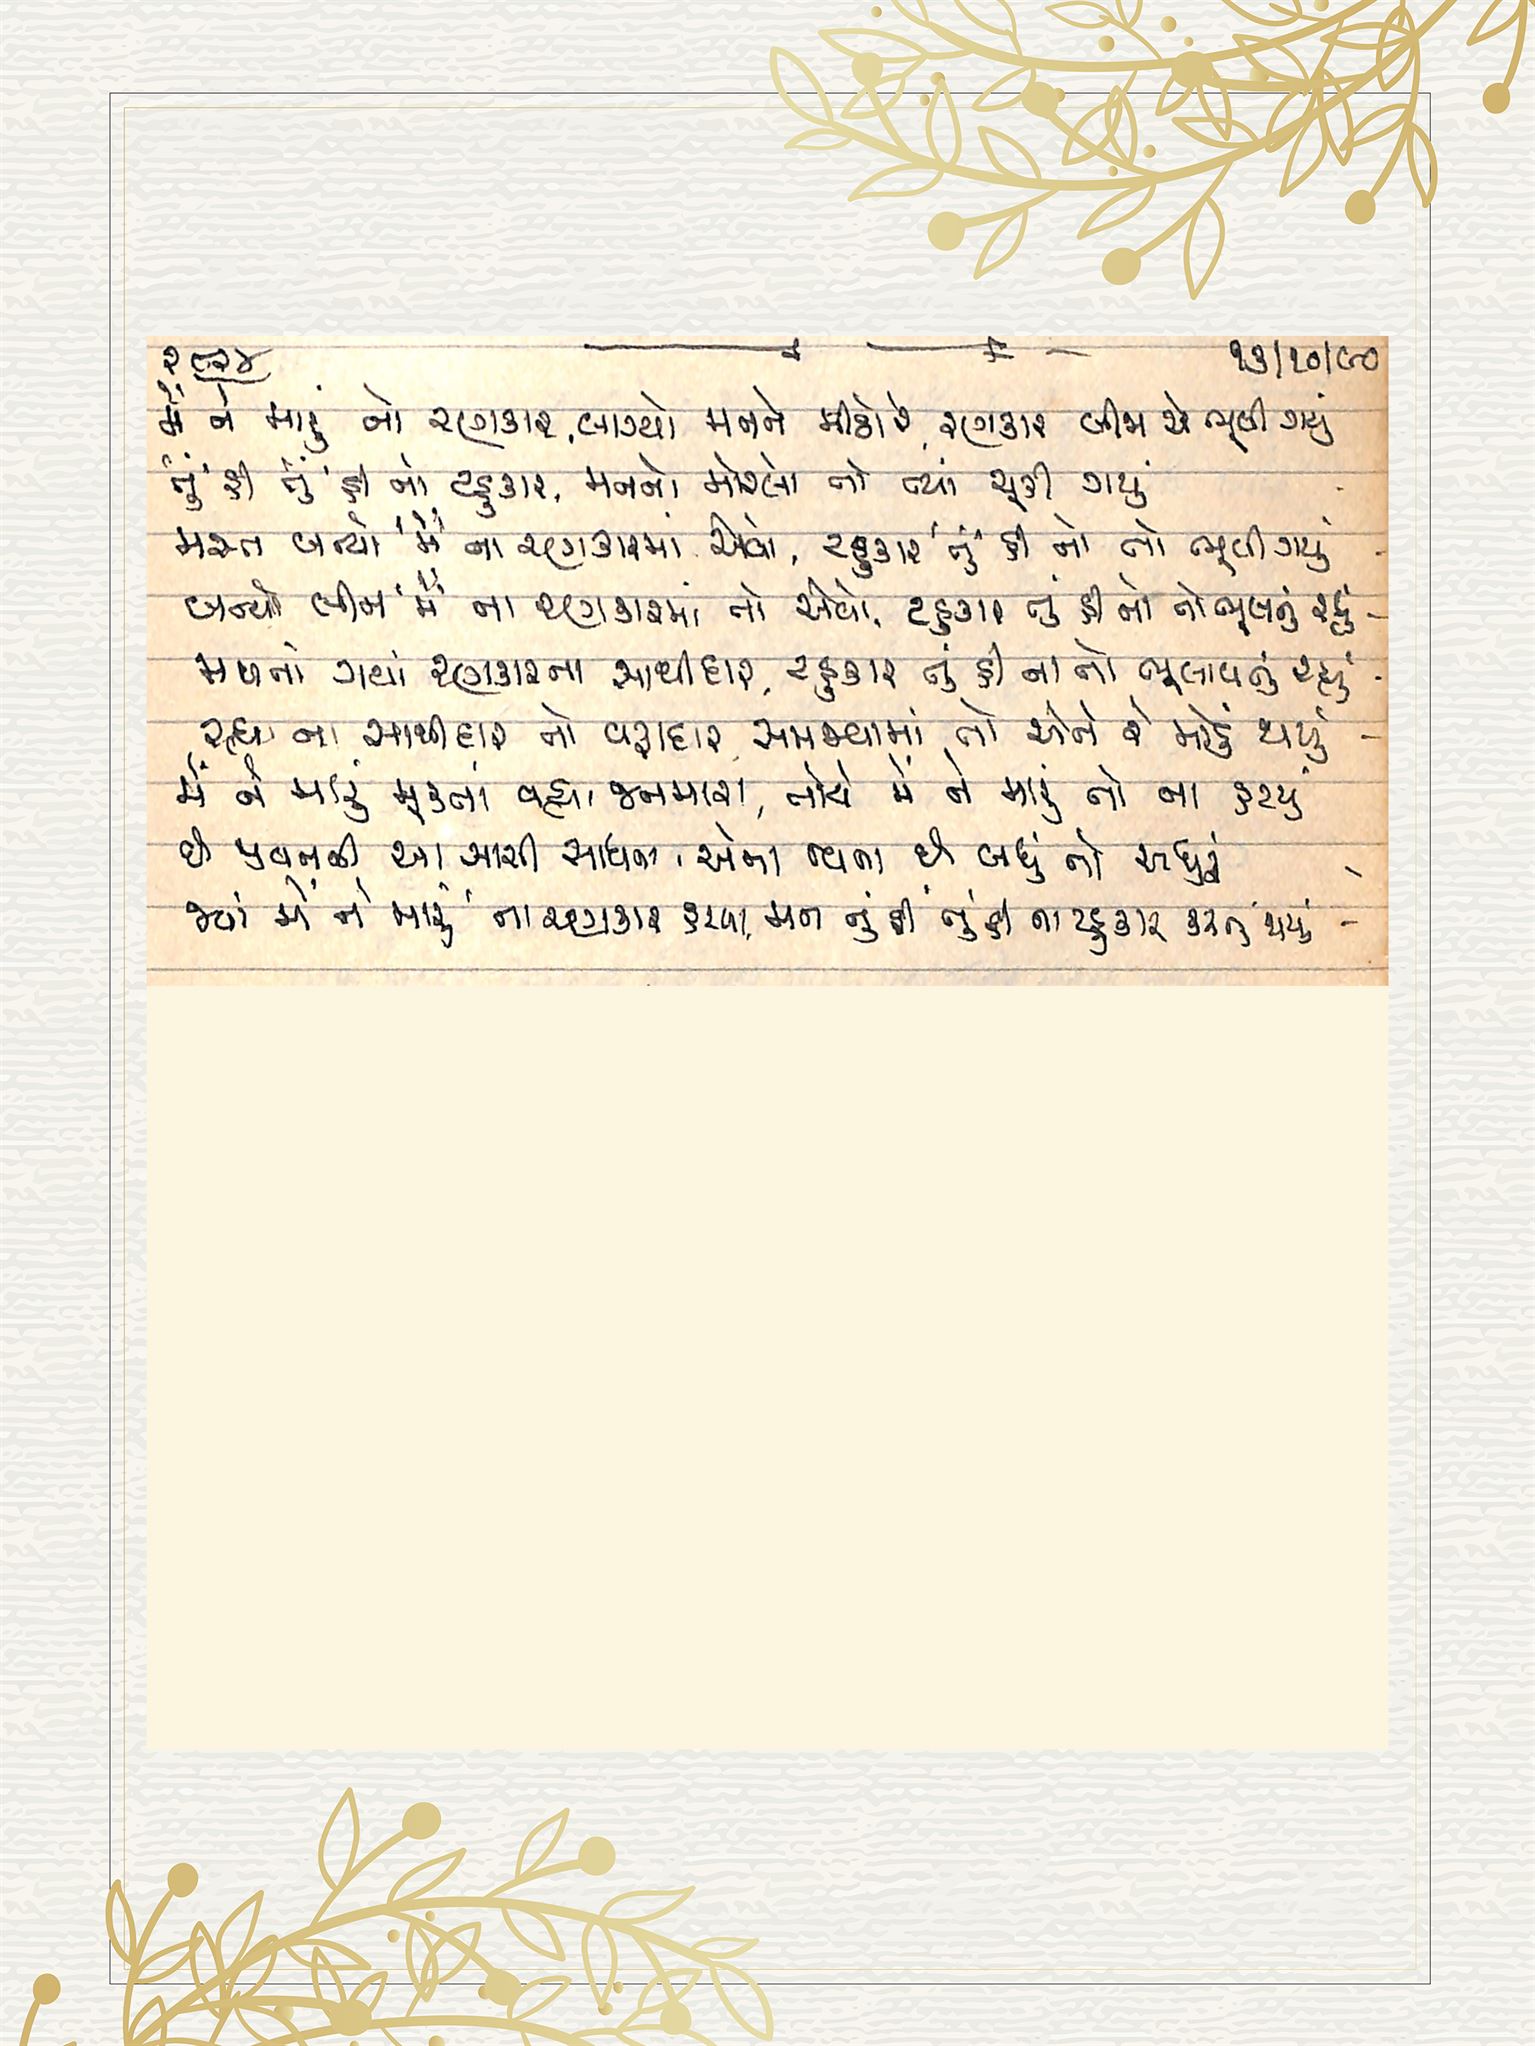 ૨૮૨૪ ૧૩/૧૦/૯૦
'મેં' ને મારું નો રણકાર, લાગ્યો મનને મીઠો રે, રણકાર બીજા એ ભૂલી ગયું
'તું' હી 'તું' હી નો ટહુકાર, મનનો મોરલો તો ત્યાં ચૂકી ગયું
મસ્ત બન્યો 'મેં' ના રણકારમાં એવો, ટહુકાર 'તું' હી નો તો ભૂલી ગયું -
બન્યો લીન 'મેં' ના રણકારમાં તો એવો, ટહુકાર તું હી નો તો ભૂલતું રહ્યું -
મળતો ગયાં રણકારના સાથીદાર, ટહુકાર તું હી ના તો ભૂલાવતું રહ્યું -
રહ્યા ના સાથીદાર તો વફાદાર, સમજવામાં તો એને રે મોડું થયું -
'મેં' ને મારું મૂકતાં વહ્યા જનમારા, તોયે મેં ને મારું તો ના છૂટયું
છે પ્રભુની આ સાચી સાધના, એના વિના છે બધું તો અધુરું -
જ્યાં મેં ને મારું ના રણકાર છૂટયા, મન તું હી તું હી ના ટહુકાર કરતું થયું -